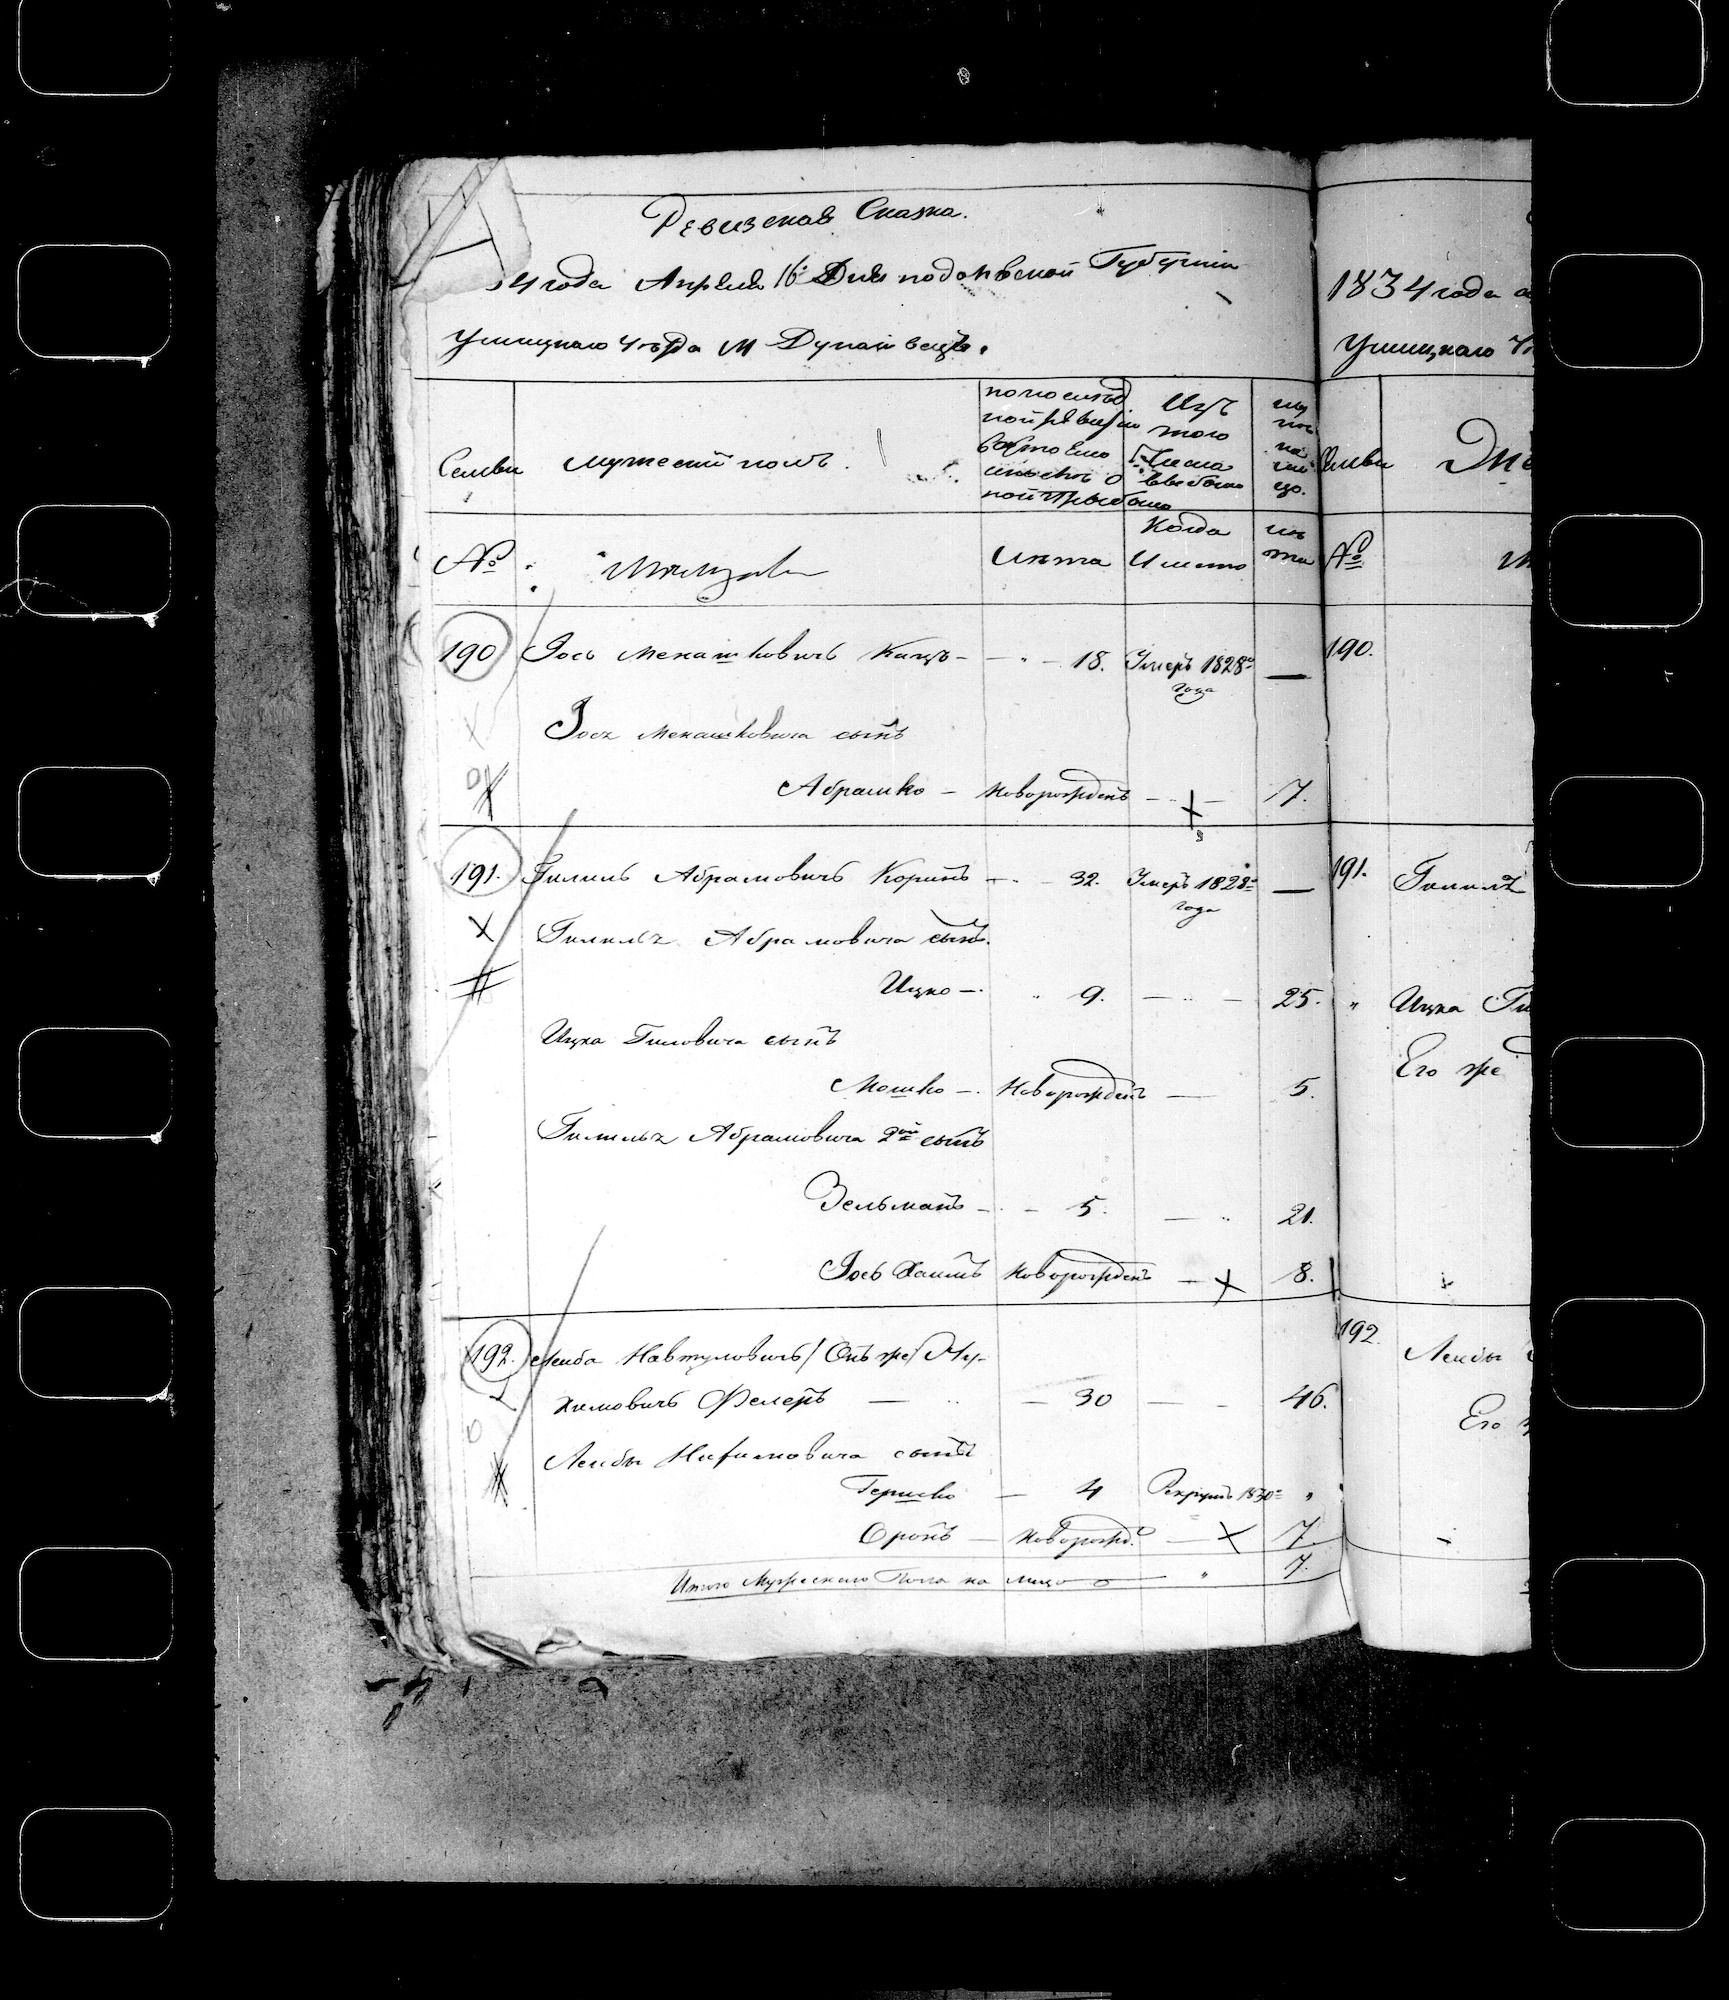 Ревизская Сказка.
4 года Апреля 16 Дня подольской Губернии
Ушицкаго уѣзда М Дунаивецъ.
Семьи
мужеский полъ.
по послѣд
ной ревизіи
состояло
и послѣ о
ной прыбыло
Изъ
того
числа
выбыло
ны
нѣ
на
ли
цо.
№
Когда
Лѣта
Именно
лѣ
та
190 Іось Менашковичъ Кацъ - 18. Умеръ 1828го —
года
Іося Менашковича сынъ
Абрашко - новорожденъ - 7.
191. Гилиль Абрамовичъ Коринъ - 32. Умеръ 1828го —
года
Гилиля Абрамовича сынъ.
Ицко - 9. — 25.
Ицка Гиловича сынъ
Мошко - Новорожденъ — 5.
Гилиля Абрамовича 2ой сынъ
Зельманъ - 5. — 21.
Іось Хаимъ новорожденъ - 8.
192. Лейба Навтуловичъ / Онъ же / Ну-
химовичъ Фелеръ — 30 — 46.
Лейбы сынъ
Гершко — 4 Рекрутъ 1830го "
Оронъ — новорожд. — 7.
Итого Мужескаго Пола на лицо — " 7.
1834 года а
Ушицкаго У
Семьи
№
190.
191. Гилиля
" Ицка Ги
Его же
192. Лейбы
Его